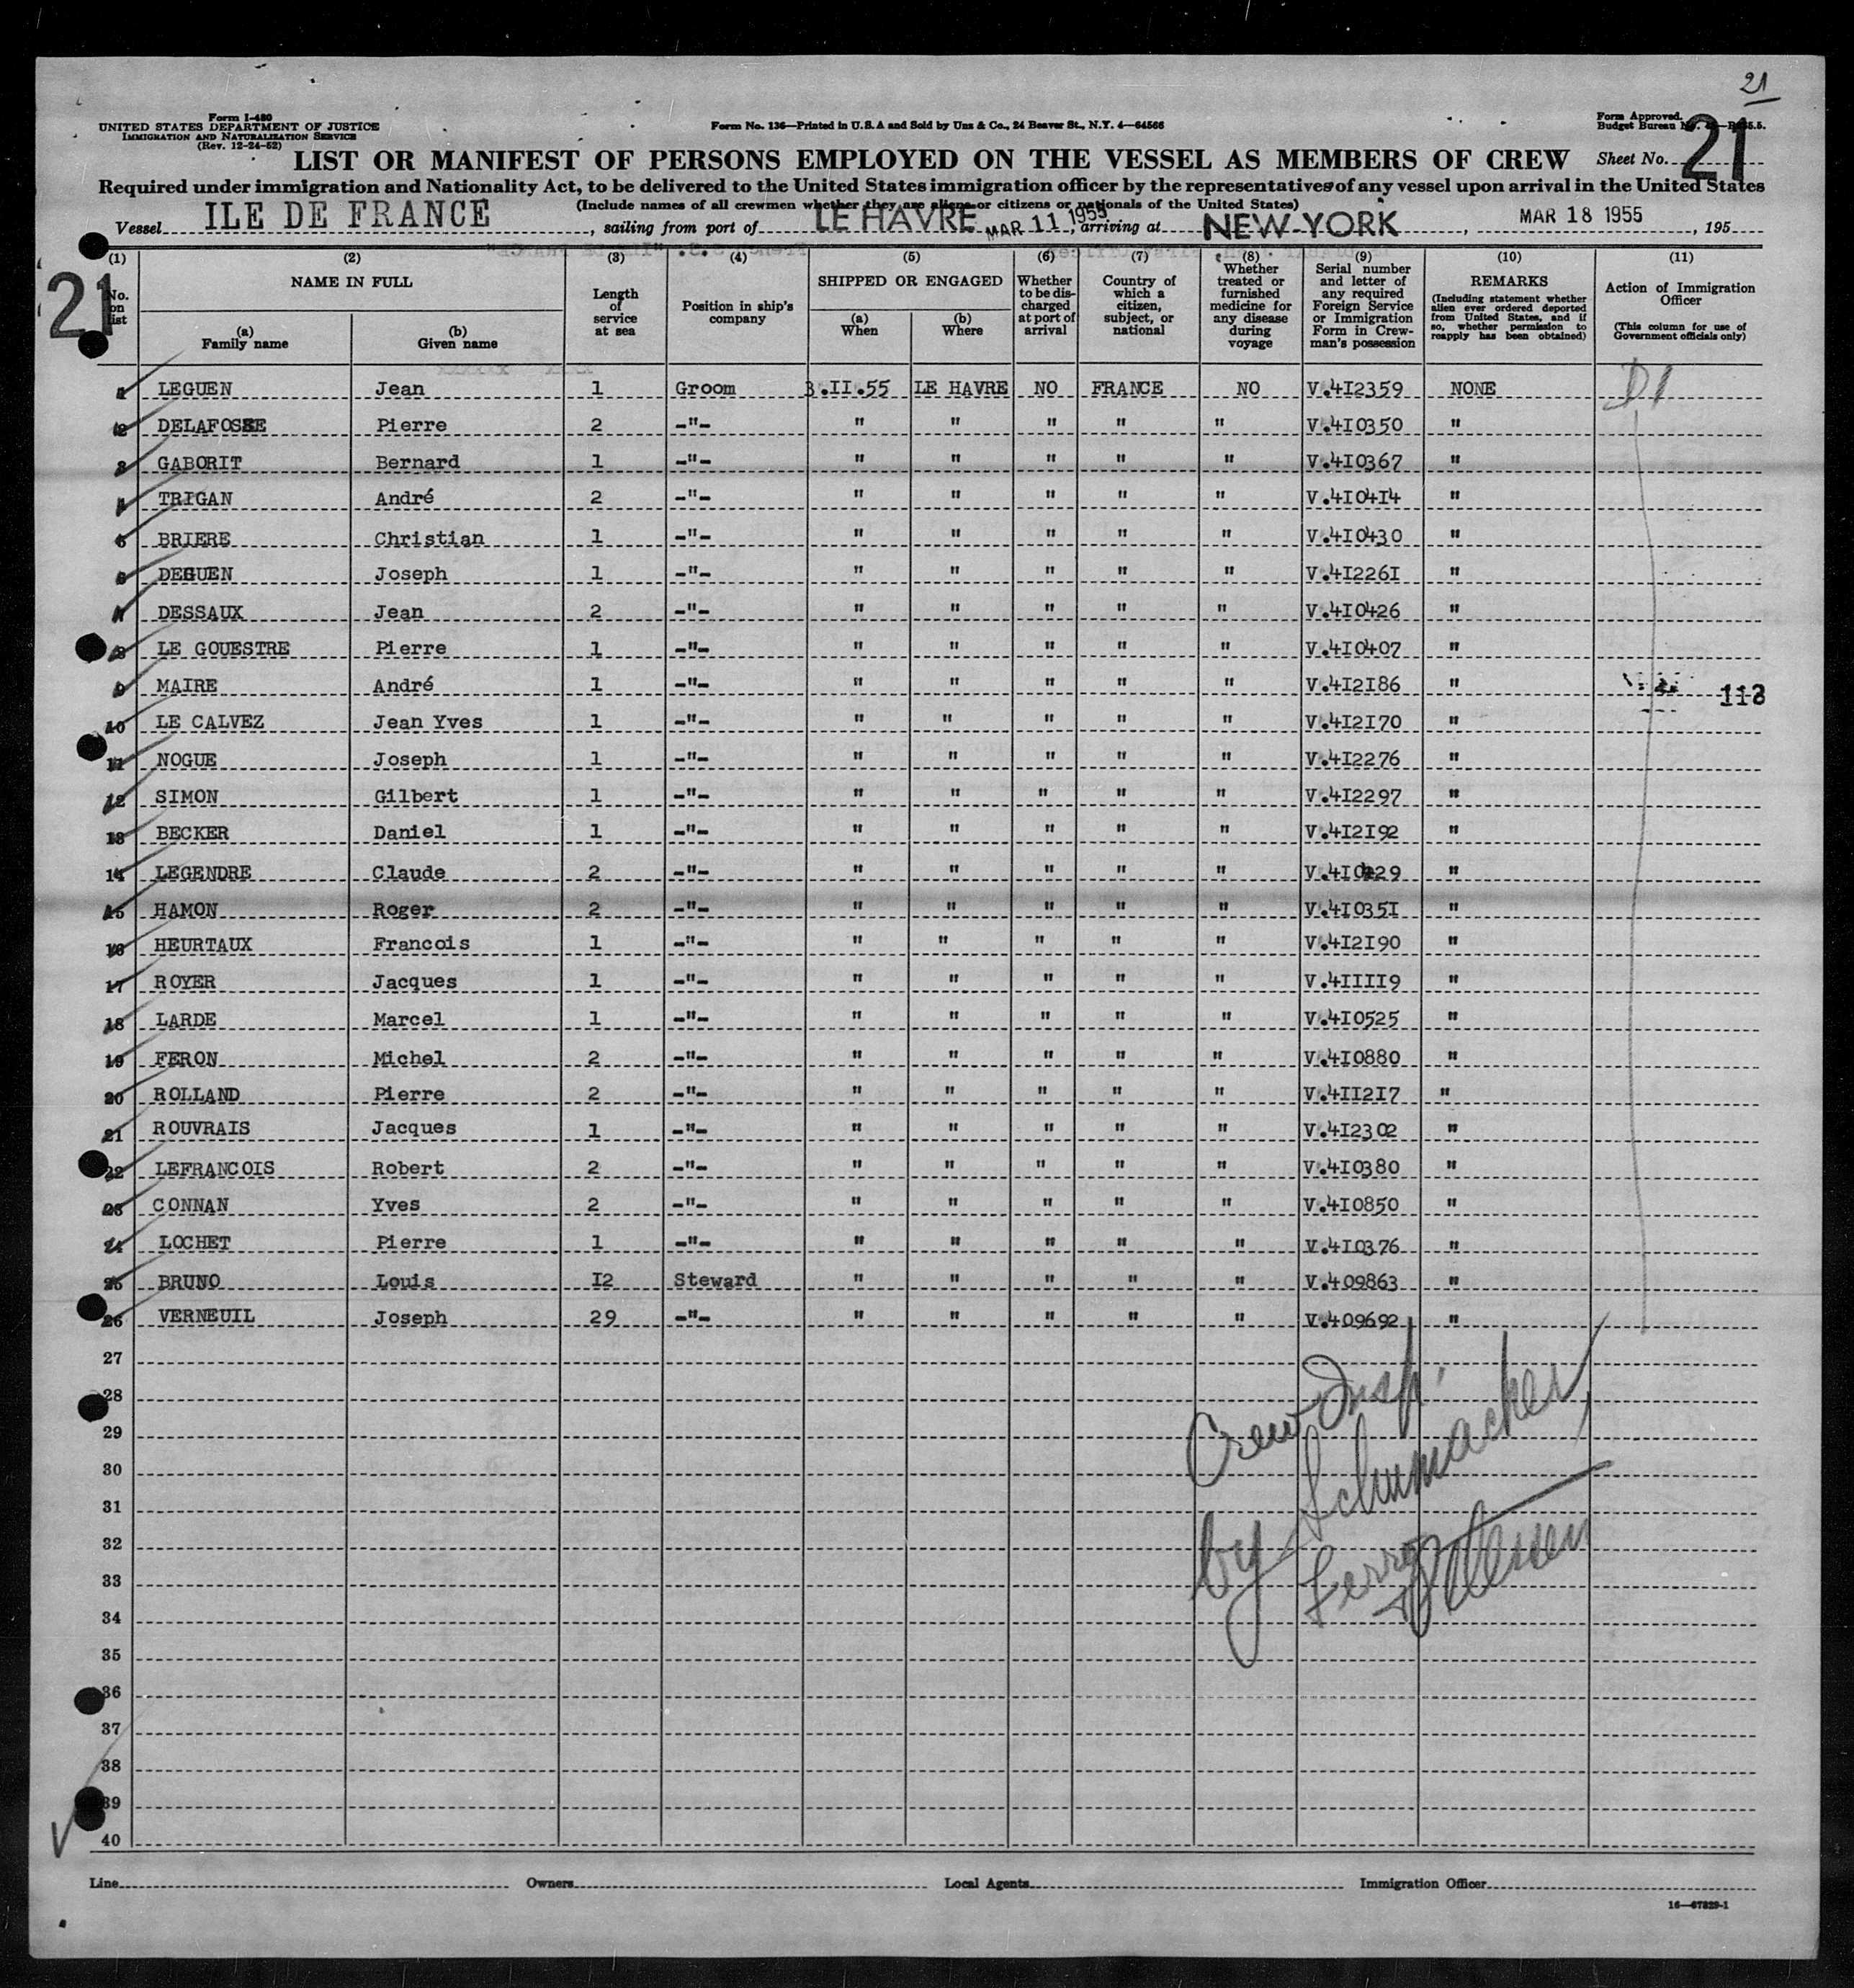 21
Form I-480
UNITED STATES DEPARTMENT OF JUSTICE
IMMIGRATION AND NATURALIZATION SERVICE
(Rev. 12-24-52)
Form No. 136—Printed in U.S.A and Sold by Unz & Co., 24 Beaver St., N.Y. 4—64566
Form Approved.
Budget Bureau No.
LIST OR MANIFEST OF PERSONS EMPLOYED ON THE VESSEL AS MEMBERS OF CREW Sheet No. 21
Required under immigration and Nationality Act, to be delivered to the United States immigration officer by the representatives of any vessel upon arrival in the United States
(Include names of all crewmen whether they are aliens or citizens or nationals of the United States)
Vessel ILE DE FRANCE, sailing from port of LE HAVRE MAR 11 1955, arriving at NEW-YORK, MAR 18 1955, 195
21
(1) (2) (3) (4) (5) (6) (7) (8) (9) (10) (11)
No. on list NAME IN FULL (a) Family name (b) Given name Length of service at sea Position in ship's company SHIPPED OR ENGAGED (a) When (b) Where Whether to be discharged at port of arrival Country of which a citizen, subject, or national Whether treated or furnished medicine for any disease during voyage Serial number and letter of any required Foreign Service or Immigration Form in Crewman's possession REMARKS (Including statement whether alien ever ordered deported from United States, and if so, whether permission to reapply has been obtained) Action of Immigration Officer (This column for use of Government officials only)
1 LEGUEN Jean 1 Groom 3.II.55 LE HAVRE NO FRANCE NO V.4I2359 NONE D1
2 DELAFOSSE Pierre 2 -"- " " " " " V.4I0350 "
3 GABORIT Bernard 1 -"- " " " " " V.4I0367 "
4 TRIGAN André 2 -"- " " " " " V.4I04I4 "
5 BRIERE Christian 1 -"- " " " " " V.4I0430 "
6 DEGUEN Joseph 1 -"- " " " " " V.4I226I "
7 DESSAUX Jean 2 -"- " " " " " V.4I0426 "
8 LE GOUESTRE Pierre 1 -"- " " " " " V.4I0407 "
9 MAIRE André 1 -"- " " " " " V.4I2I86 " 113
10 LE CALVEZ Jean Yves 1 -"- " " " " " V.4I2I70 "
11 NOGUE Joseph 1 -"- " " " " " V.4I2276 "
12 SIMON Gilbert 1 -"- " " " " " V.4I2297 "
13 BECKER Daniel 1 -"- " " " " " V.4I2I92 "
14 LEGENDRE Claude 2 -"- " " " " " "
15 HAMON Roger 2 -"- " " " " " V.4I035I "
16 HEURTAUX Francois 1 -"- " " " " " V.4I2I90 "
17 ROYER Jacques 1 -"- " " " " " V.4IIII9 "
18 LARDE Marcel 1 -"- " " " " " V.4I0525 "
19 FERON Michel 2 -"- " " " " " V.4I0880 "
20 ROLLAND Pierre 2 -"- " " " " " V.4II2I7 "
21 ROUVRAIS Jacques 1 -"- " " " " " V.4I2302 "
22 LEFRANCOIS Robert 2 -"- " " " " " V.4I0380 "
23 CONNAN Yves 2 -"- " " " " " V.4I0850 "
24 LOCHET Pierre 1 -"- " " " " " V.4I0376 "
25 BRUNO Louis I2 Steward " " " " " V.409863 "
26 VERNEUIL Joseph 29 -"- " " " " " V.409692 "
27
28
29
30
31
32
33
34
35
36
37
38
39
40
Crew Insp.
by Schumacher
Ferro
Line Owners Local Agents Immigration Officer
16—67829-1